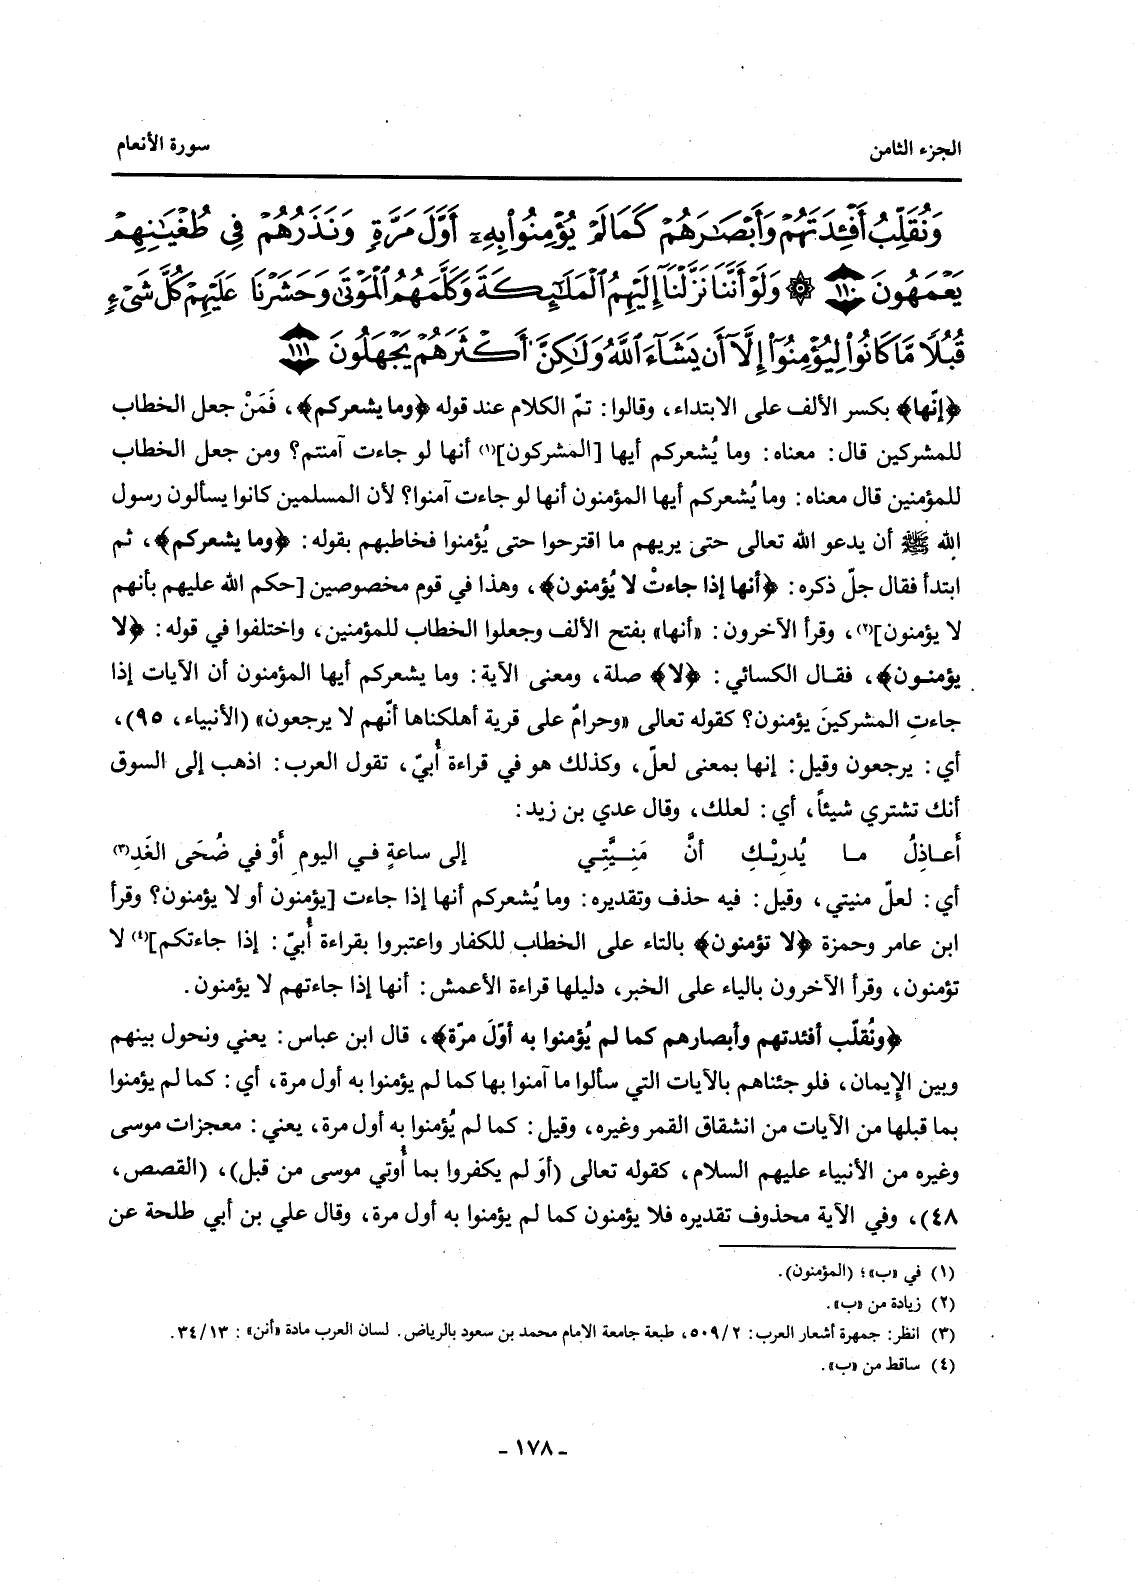 الجزء الثامن
سورة الأنعام
وَنُقَلِّبُ أَفْـِٔدَتَهُمْ وَأَبْصَٰرَهُمْ كَمَا لَمْ يُؤْمِنُوا۟ بِهِۦٓ أَوَّلَ مَرَّةٍ وَنَذَرُهُمْ فِى طُغْيَٰنِهِمْ
يَعْمَهُونَ ١١٠ ۞ وَلَوْ أَنَّنَا نَزَّلْنَآ إِلَيْهِمُ ٱلْمَلَٰٓئِكَةَ وَكَلَّمَهُمُ ٱلْمَوْتَىٰ وَحَشَرْنَا عَلَيْهِمْ كُلَّ شَىْءٍ
قُبُلًا مَّا كَانُوا۟ لِيُؤْمِنُوٓا۟ إِلَّآ أَن يَشَآءَ ٱللَّهُ وَلَٰكِنَّ أَكْثَرَهُمْ يَجْهَلُونَ ١١١
﴿إنّها﴾ بكسر الألف على الابتداء، وقالوا: تمّ الكلام عند قوله ﴿وما يشعركم﴾، فَمَنْ جعل الخطاب
للمشركين قال: معناه: وما يُشعركم أيها [المشركون](١) أنها لو جاءت آمنتم؟ ومن جعل الخطاب
للمؤمنين قال معناه: وما يُشعركم أيها المؤمنون أنها لو جاءت آمنوا؟ لأن المسلمين كانوا يسألون رسول
الله ﷺ أن يدعو الله تعالى حتى يريهم ما اقترحوا حتى يُؤمنوا فخاطبهم بقوله: ﴿وما يشعركم﴾، ثم
ابتدأ فقال جلّ ذكره: ﴿أنها إذا جاءتْ لا يُؤمنون﴾، وهذا في قوم مخصوصين [حكم الله عليهم بأنهم
لا يؤمنون](٢)، وقرأ الآخرون: «أنها» بفتح الألف وجعلوا الخطاب للمؤمنين، واختلفوا في قوله: ﴿لا
يؤمنـون﴾، فقـال الكسائي: ﴿لا﴾ صلة، ومعنى الآية: وما يشعركم أيها المؤمنون أن الآيات إذا
جاءتِ المشركينَ يؤمنون؟ كقوله تعالى «وحرامٌ على قرية أهلكناها أنّهم لا يرجعون» (الأنبياء، ٩٥)،
أي: يرجعون وقيل: إنها بمعنى لعلّ، وكذلك هو في قراءة أُبيّ، تقول العرب: اذهب إلى السوق
أنك تشتري شيئاً، أي: لعلك، وقال عدي بن زيد:
أَعـاذِلُ مـا يُدرِيْـكِ أنَّ مَنِـيَّتِـي إلى ساعةٍ فـي اليومِ أوْ في ضُحَى الغَدِ(٣)
أي: لعلّ منيتي، وقيل: فيه حذف وتقديره: وما يُشعركم أنها إذا جاءت [يؤمنون أو لا يؤمنون؟ وقرأ
ابن عامر وحمزة ﴿لا تؤمنون﴾ بالتاء على الخطاب للكفار واعتبروا بقراءة أُبيّ: إذا جاءتكم](٤) لا
تؤمنون، وقرأ الآخرون بالياء على الخبر، دليلها قراءة الأعمش: أنها إذا جاءتهم لا يؤمنون.
﴿ونُقلّب أفئدتهم وأبصارهم كما لم يُؤمنوا به أوّلَ مرّة﴾، قال ابن عباس: يعني ونحول بينهم
وبين الإيمان، فلو جئناهم بالآيات التي سألوا ما آمنوا بها كما لم يؤمنوا به أول مرة، أي: كما لم يؤمنوا
بما قبلها من الآيات من انشقاق القمر وغيره، وقيل: كما لم يُؤمنوا به أول مرة، يعني: معجزات موسى
وغيره من الأنبياء عليهم السلام، كقوله تعالى (أوَ لم يكفروا بما أُوتي موسى من قبل)، (القصص،
٤٨)، وفي الآية محذوف تقديره فلا يؤمنون كما لم يؤمنوا به أول مرة، وقال علي بن أبي طلحة عن
(١) في «ب»؛ (المؤمنون).
(٢) زيادة من «ب».
(٣) انظر: جمهرة أشعار العرب: ٢/٥٠٩، طبعة جامعة الامام محمد بن سعود بالرياض. لسان العرب مادة «أنن»: ٣٤/١٣.
(٤) ساقط من «ب».
- ١٧٨ -